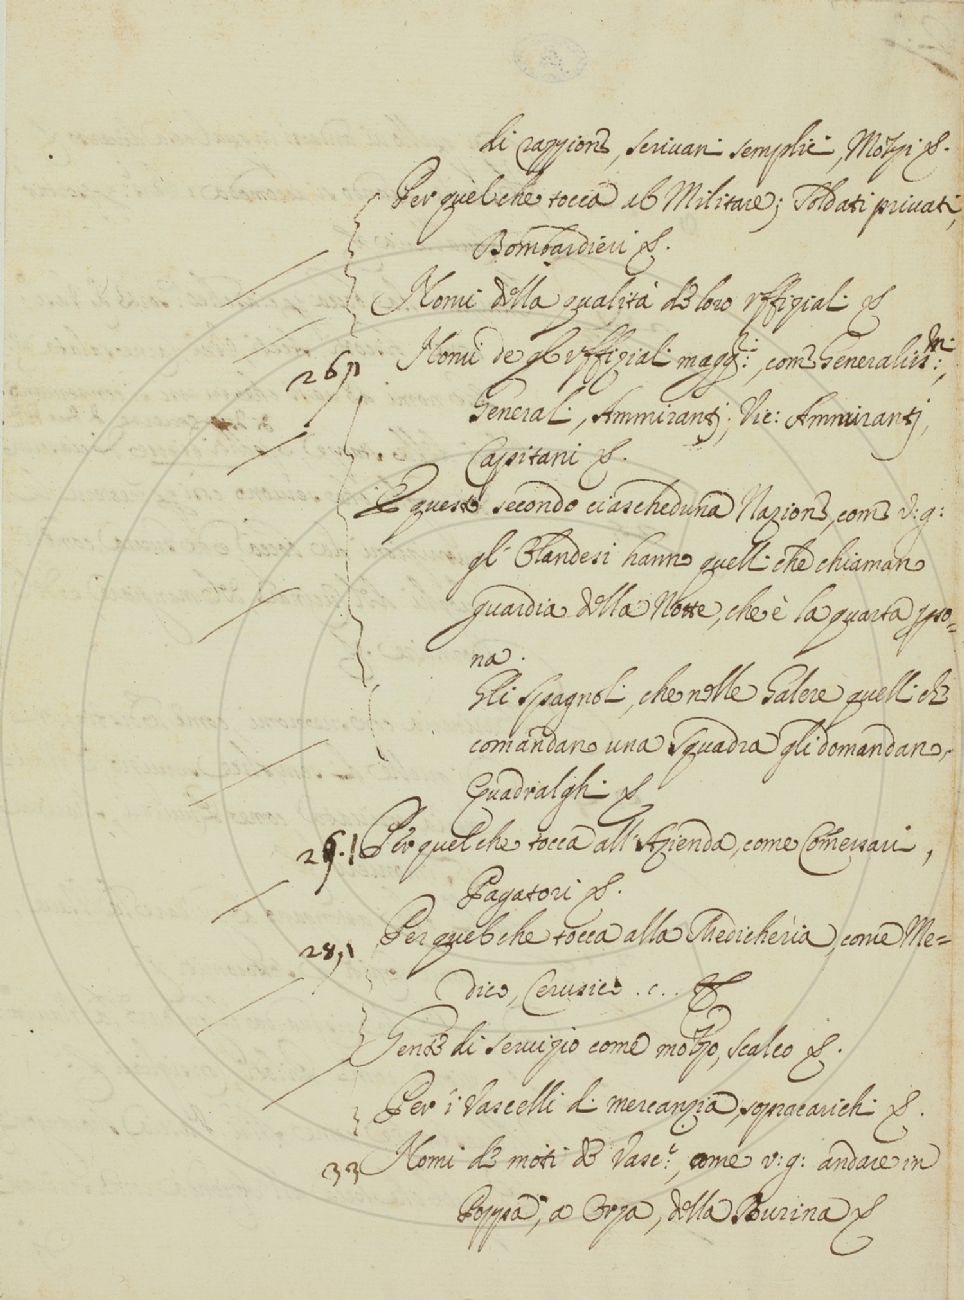 di raggione, scrivani semplici, Mozzi &.
Per quel che tocca al Militare; Soldati privati,
Bombardieri &.
Nomi della qualità de loro uffizial: &
26 Nomi de gl' uffizial: magg:ri:, come Generaliss:mi:,
General:, Ammiranti; Vic: Ammiranti,
Capitani &.
E questo secondo ciascheduna Nazione, come v:g:
gl' Olandesi hanno quelli che chiaman
guardia della Notte, che è la quarta perso=
na.
Gli spagnoli, che nelle Galere quelli che
comandano una squadra gli domandan
Quadralghi &
Per quel che tocca all' Azienda, come Comessari,
Pagatori &.
28 Per quel che tocca alla Medicheria, come Me=
dico, Cerusico . c . . &
Gente di servizio come mozzo, scalco &.
Per i Vascelli di mercanzia, sopracarichi &.
33 Nomi de moti de Vasc:li, come v:g: andare in
Poppa, a Orza, della Bourina &